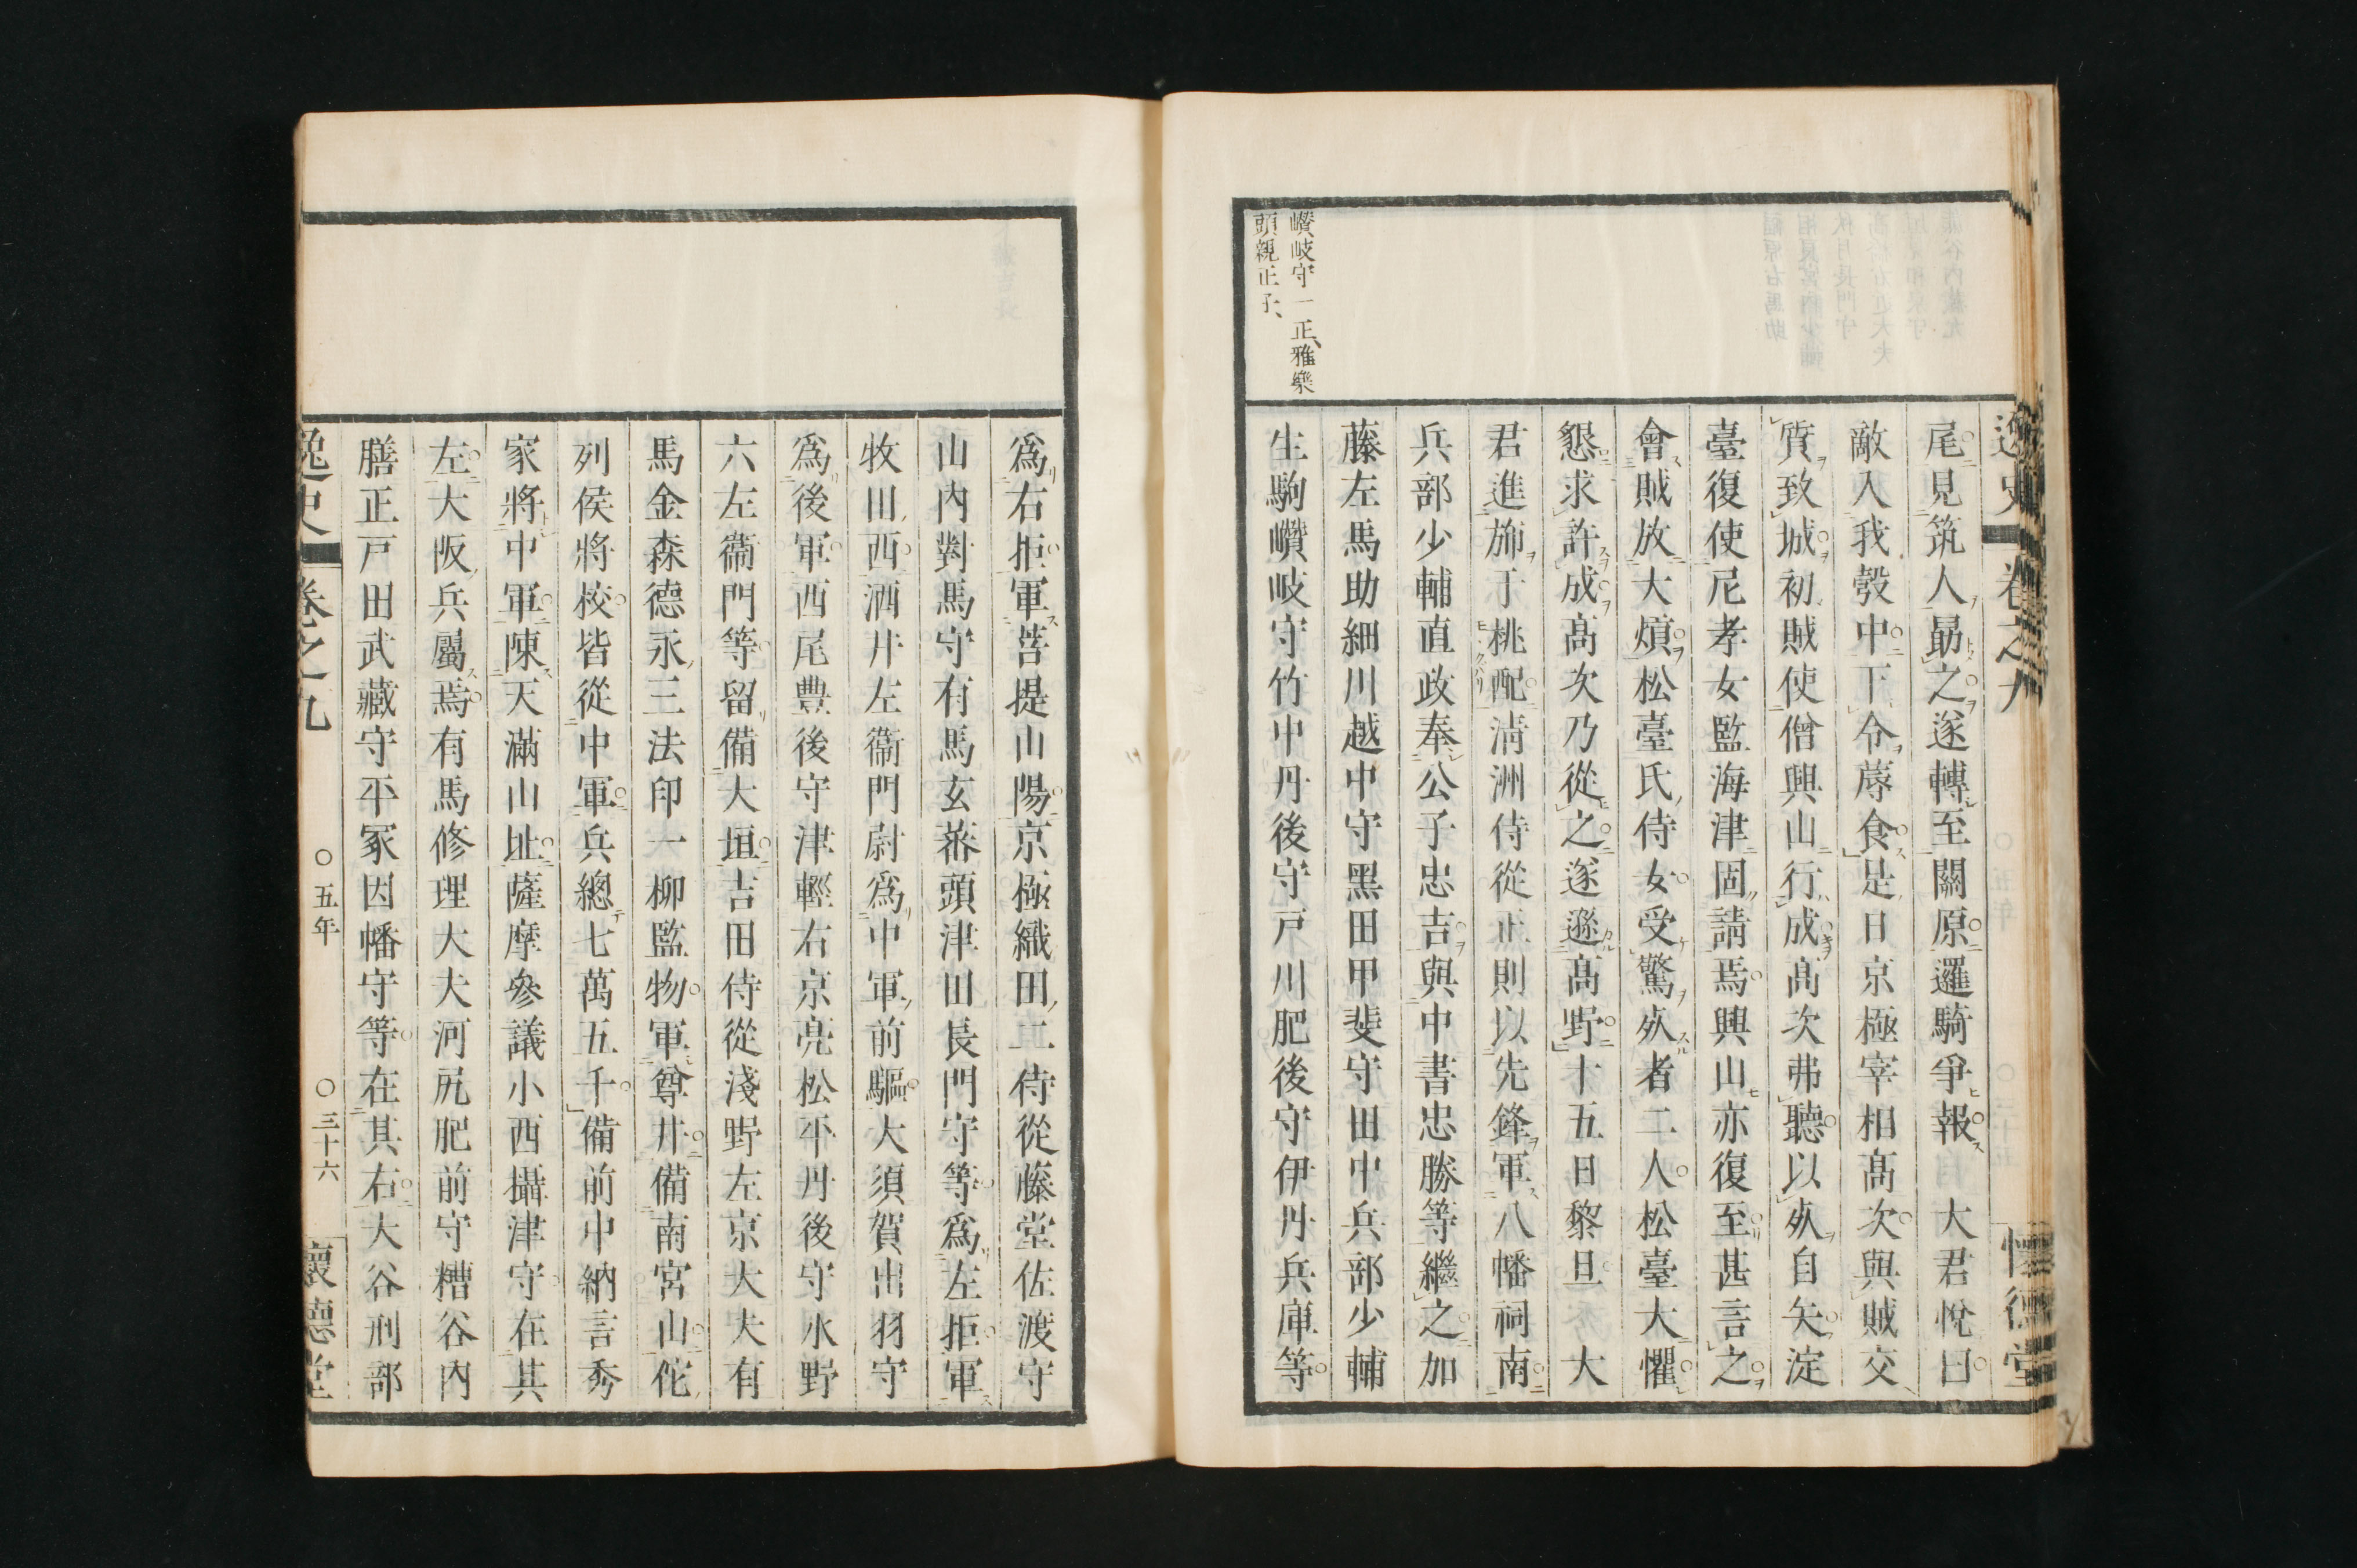 逸史 卷之九 懷德堂
尾見筑人勗之遂轉至關原邏騎爭報 大君悅曰
敵入我彀中下令蓐食是日京極宰相高次與賊交
質致城初賊使僧興山行成高次弗聽以死自矢淀
臺復使尼孝女監海津固請焉興山亦復至甚言之
會賊放大熕松臺氏侍女受驚死者二人松臺大懼
懇求許成高次乃從之遂遯高野十五日黎旦 大
君進旆于桃配淸洲侍從正則以先鋒軍八幡祠南
兵部少輔直政奉公子忠吉與中書忠勝等繼之加
藤左馬助細川越中守黑田甲斐守田中兵部少輔
讃岐守一正、雅樂
頭親正子、
生駒讃岐守竹中丹後守戶川肥後守伊丹兵庫等
爲右拒軍菩提山陽京極織田二侍從藤堂佐渡守
山內對馬守有馬玄蕃頭津田長門守等爲左拒軍
牧田西酒井左衞門尉爲中軍前驅大須賀出羽守
爲後軍西尾豐後守津輕右京亮松平丹後守水野
六左衞門等留備大垣吉田侍從淺野左京大夫有
馬金森德永三法印一柳監物軍尊井備南宮山佗
列侯將校皆從中軍兵總七萬五千備前中納言秀
家將中軍陳天滿山址薩摩參議小西攝津守在其
左大阪兵屬焉有馬修理大夫河尻肥前守糟谷內
膳正戶田武藏守平冢因幡守等在其右大谷刑部
逸史 卷之九 ○五年 ○三十六 懷德堂